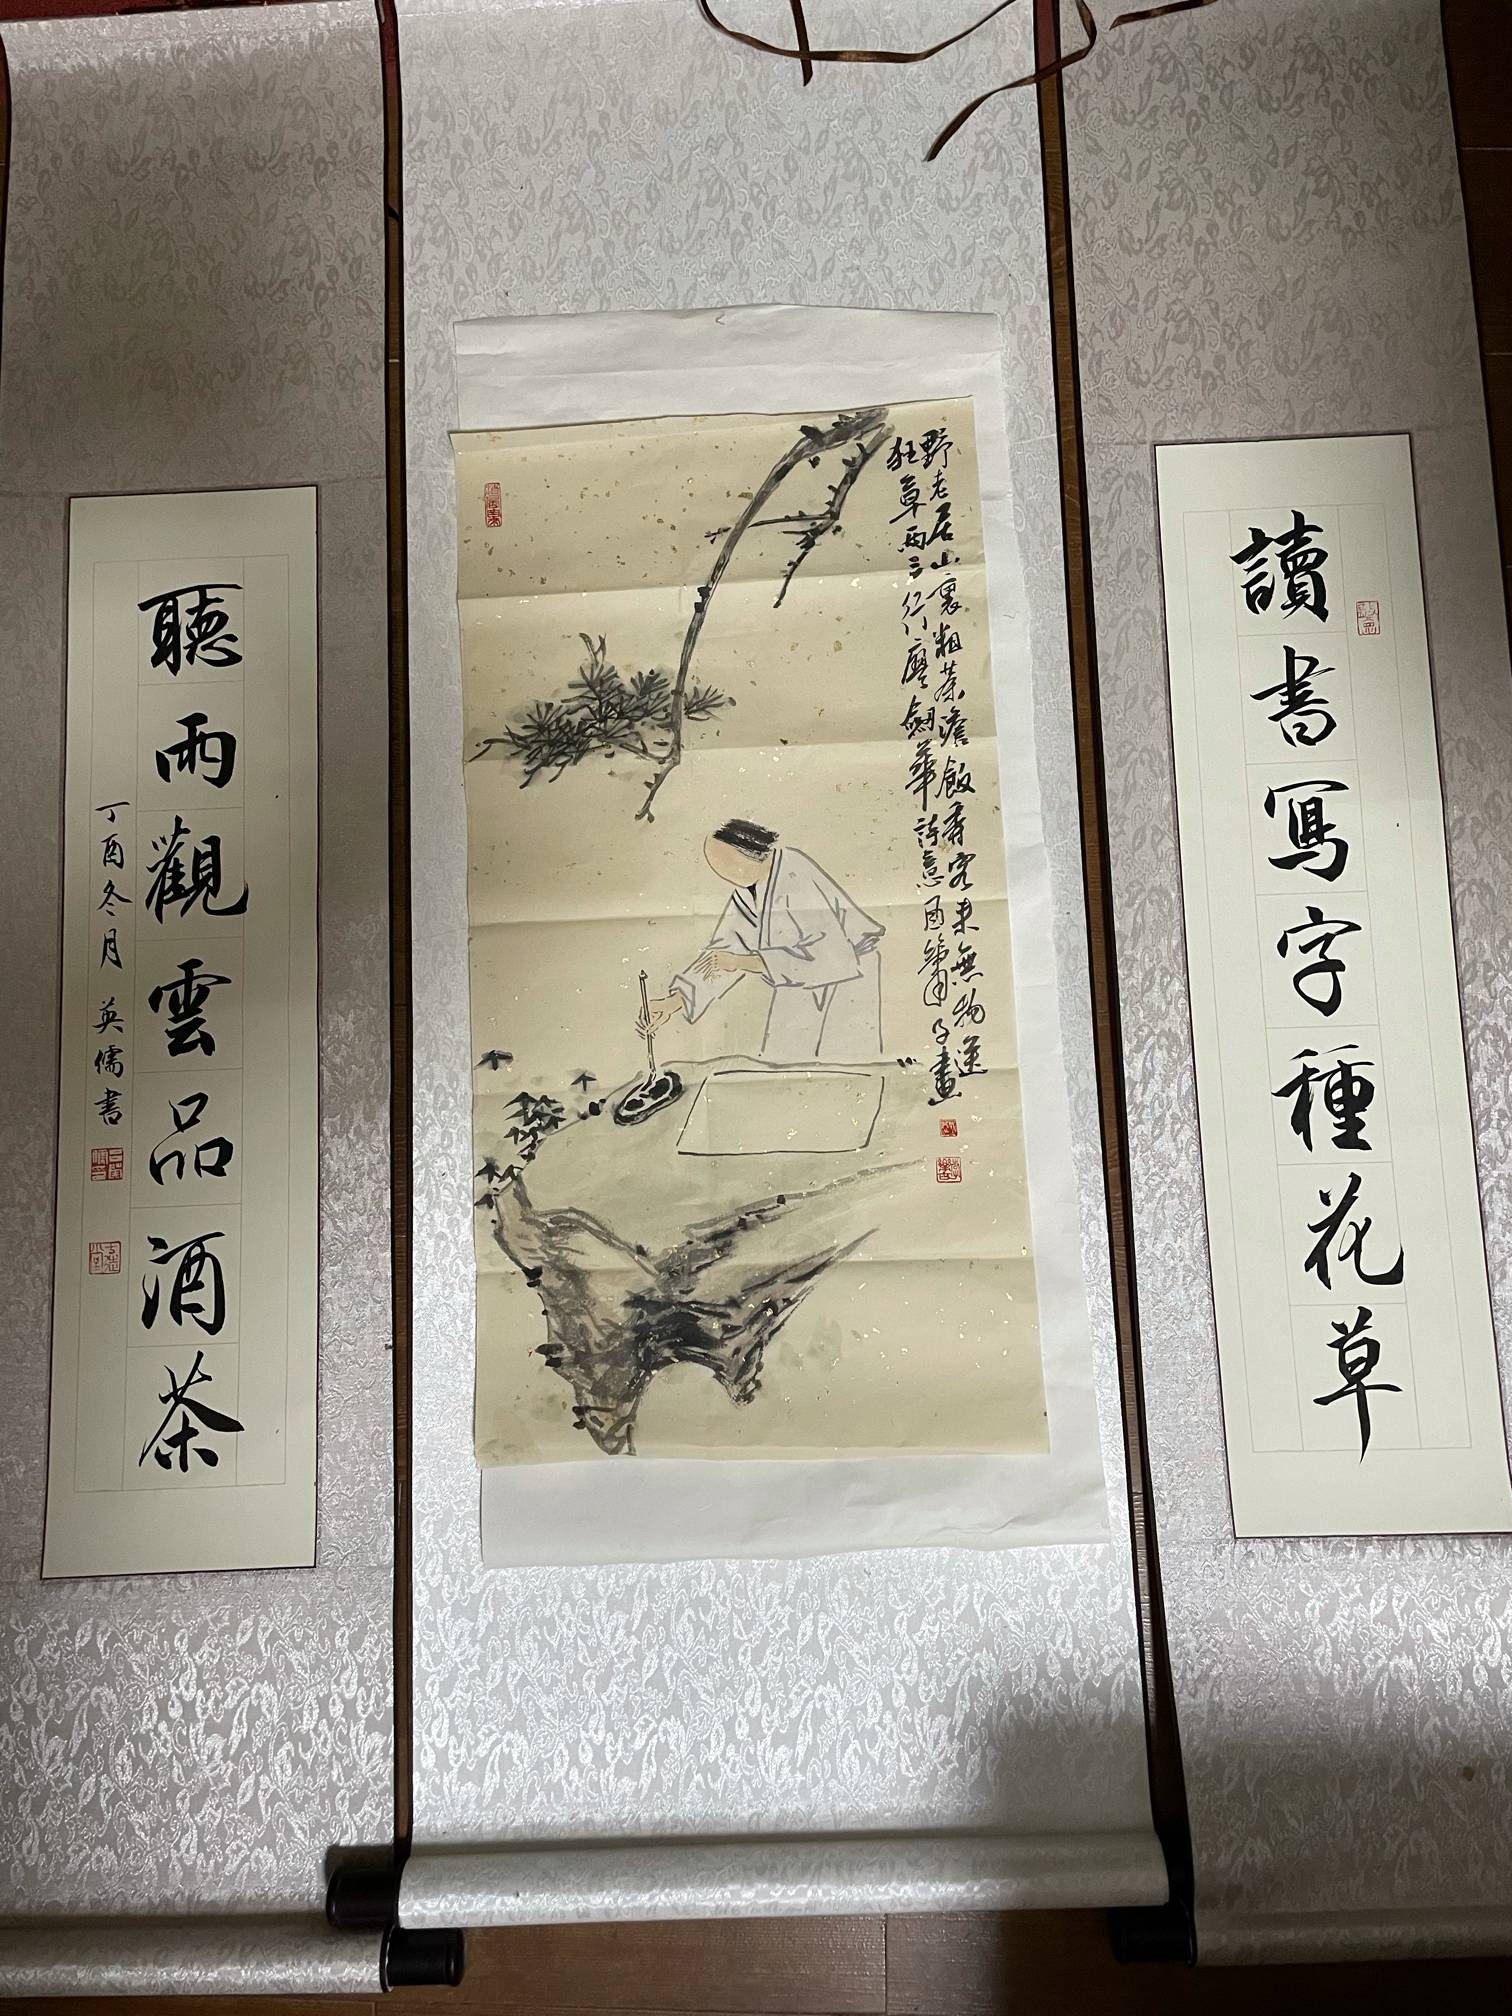 讀書寫字種花草
野老居山裏粗茶澹飯香客来無物送
狂草两三行廖劍華詩意圖 子畫
聽雨觀雲品酒茶
丁酉冬月 英儒書